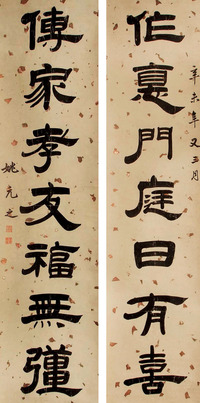 作悳門庭日有喜
辛未年又三月
傳家孝友福無彊
姚元之